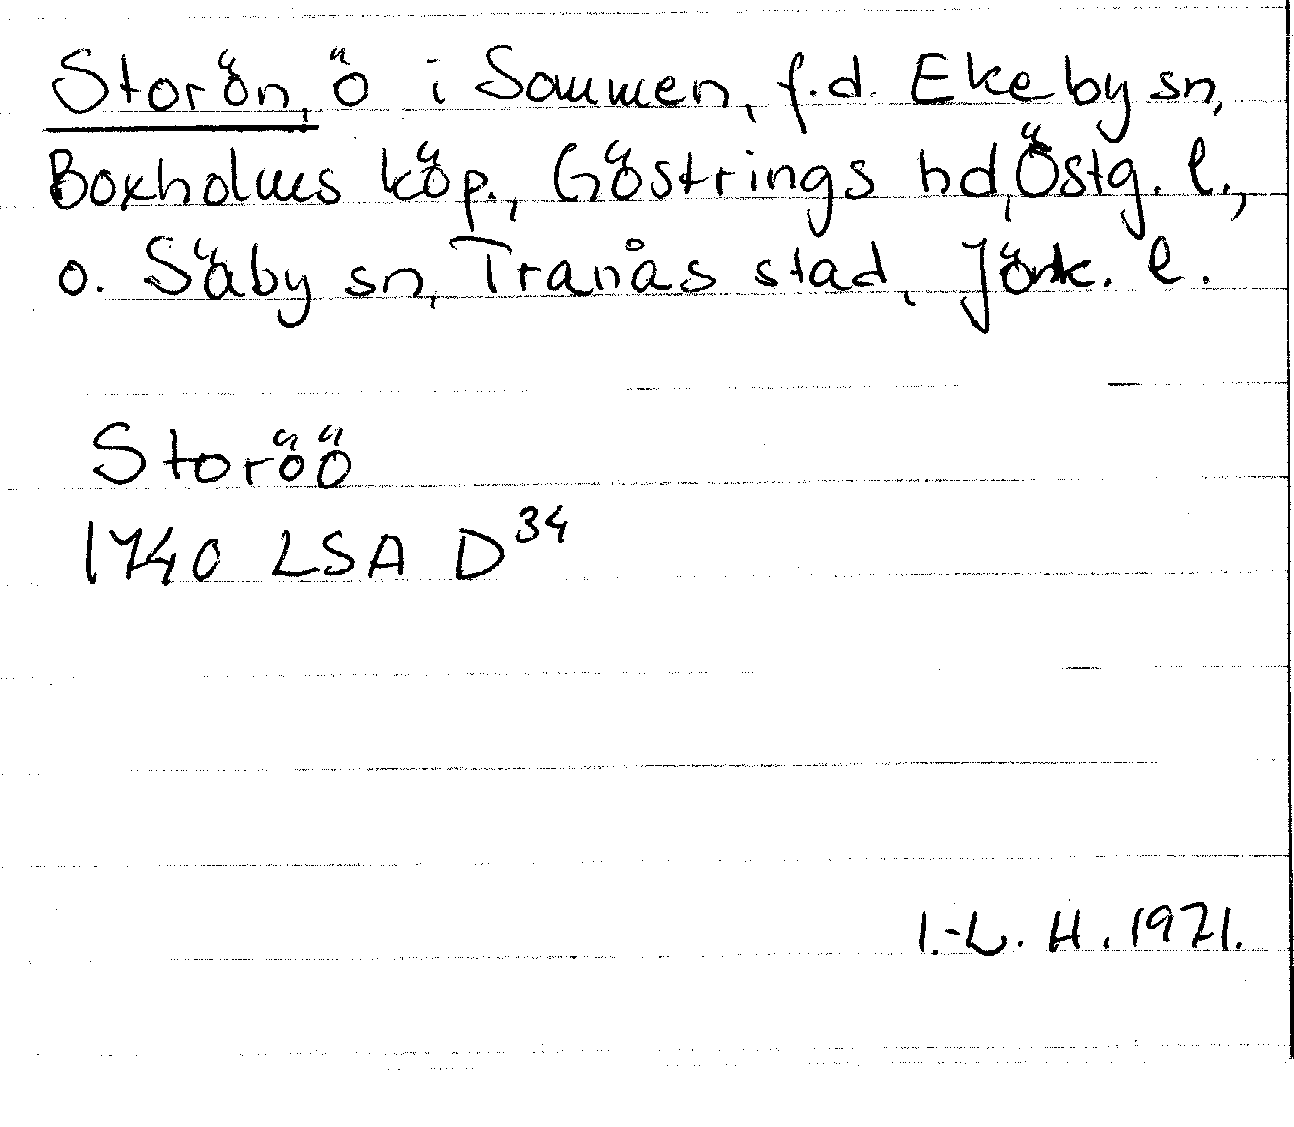 Storön, ö i Sommen, f.d. Ekeby sn,
Boxholms köp., Göstrings hd, Östg. l.,
o. Säby sn, Tranås stad, Jönk. l.
Storöö
1740 LSA D³⁴
I.-L. H. 1971.